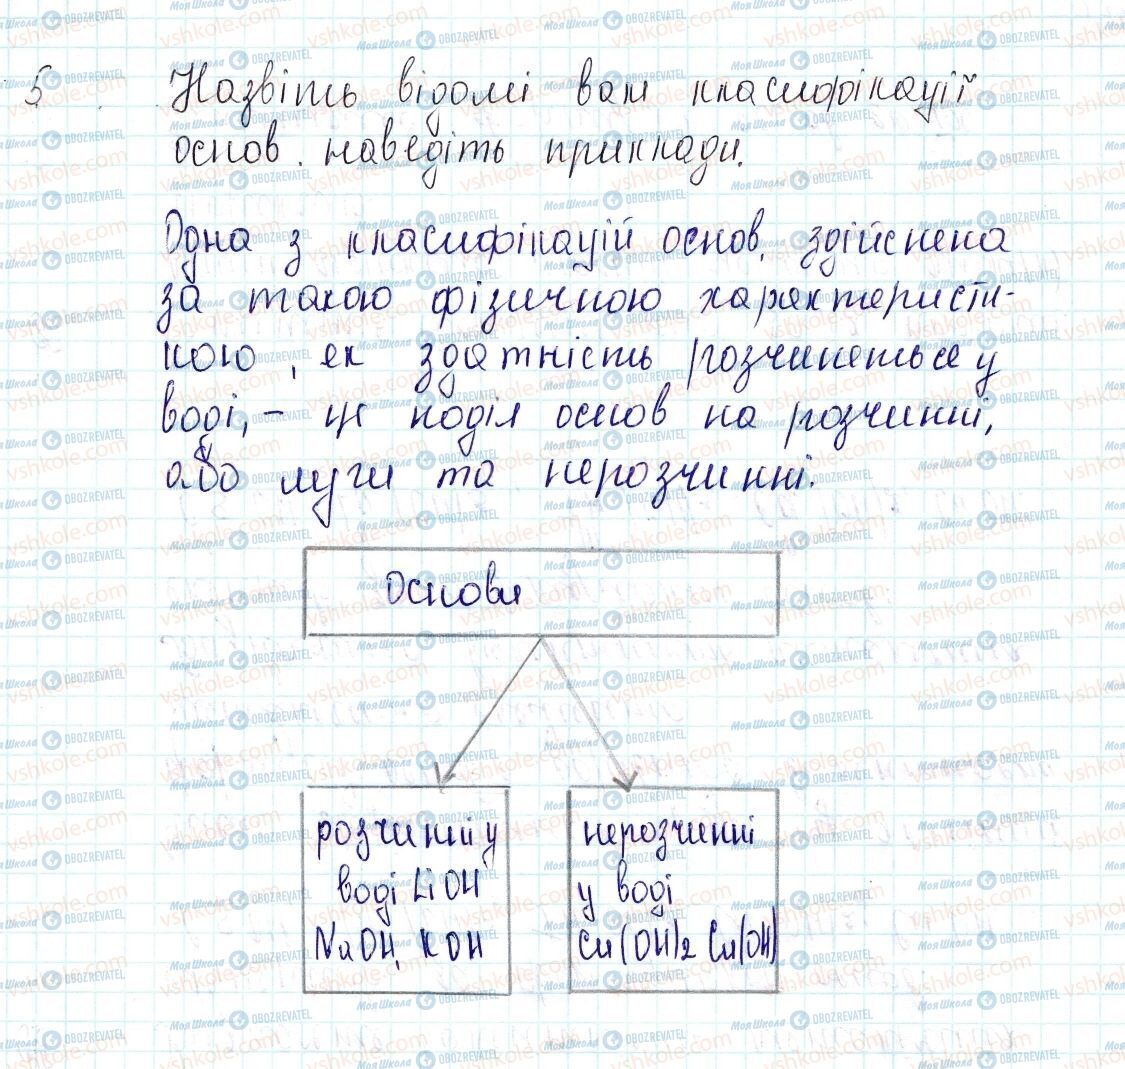 5. Назвіть відомі вам класифікації
основ. наведіть приклади.
Одна з класифікацій основ, здійснена
за такою фізичною характеристи-
кою, як здатність розчиняться у
воді, - це поділ основ на розчинні,
або луги та нерозчинні.
Основи
розчинні у
воді LiOH
NaOH, KOH
нерозчинні
у воді
Cu(OH)2 Cu(OH)
МояШкола OBOZREVATEL
vshkole.com